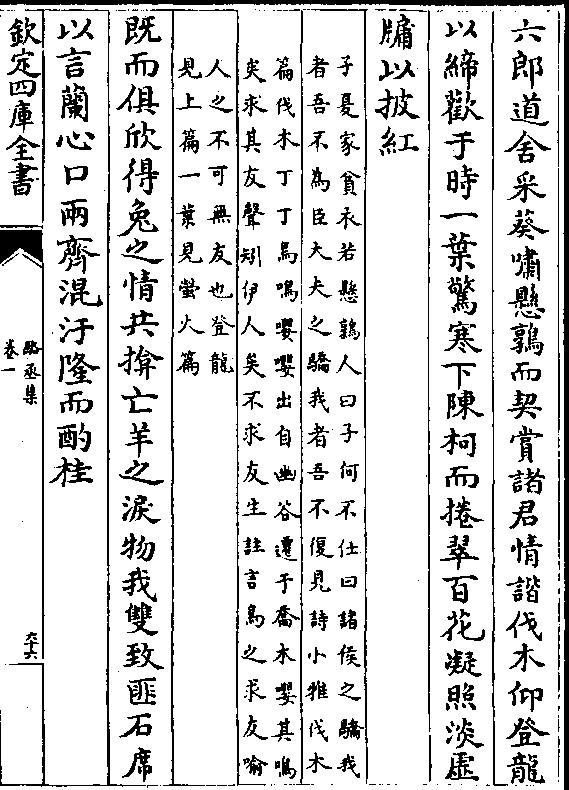 六郎道舍采葵嘯懸鶉而契賞諸君情諧伐木仰登龍
以締歡于時一葉驚寒下陳柯而捲翠百花凝照淡虛
牖以披紅
子夏家貧衣若懸鶉人曰子何不仕曰諸侯之驕我
者吾不為臣大夫之驕我者吾不復見詩小雅伐木
篇伐木丁丁鳥鳴嚶嚶出自幽谷遷于喬木嚶其鳴
矣求其友聲矧伊人矣不求友生註言鳥之求友喻
人之不可無友也登龍
見上篇一葉見螢火篇
既而俱欣得兔之情共揜亡羊之淚物我雙致匪石席
以言蘭心口兩齊混汙隆而酌桂
欽定四庫全書
駱丞集
卷一
六十六